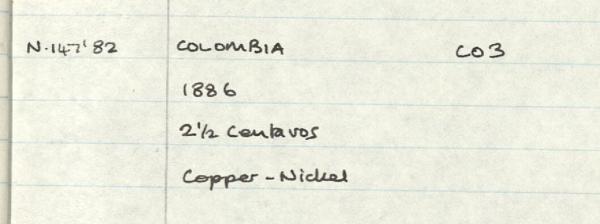 N.147'82 COLOMBIA CO3
1886
2½ Centavos
Copper-Nickel